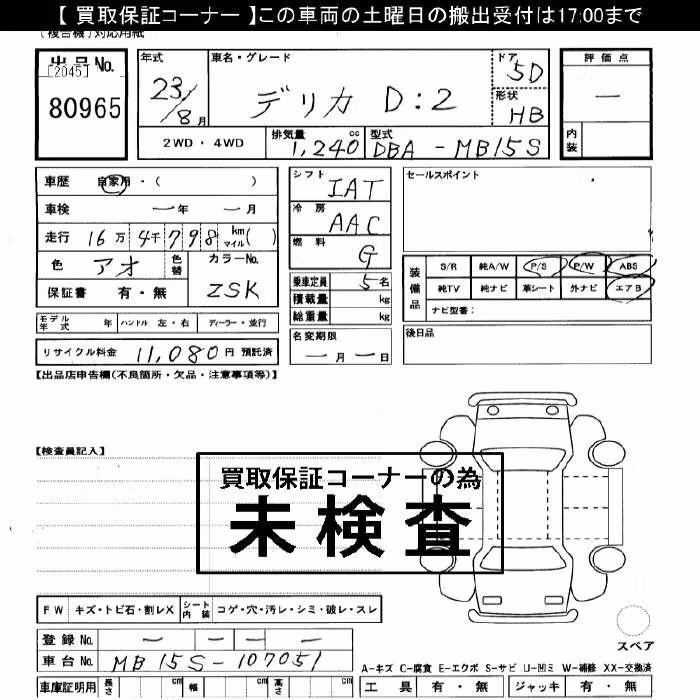 【 買取保証コーナー 】この車両の土曜日の搬出受付は17:00まで
(複合機)対応用紙
出品No. [2045] 80965
年式 23/8月 車名・グレード デリカ D:2 ドア 5D 形状 HB
評価点 — 内装
2WD・4WD 排気量 1,240cc 型式 DBA - MB15S
車歴 自家用・( )
車検 —年 —月
走行 16万4千798 km マイル( )
色 アオ 色替 カラーNo. ZSK
保証書 有・無
シフト IAT
冷房 AAC
燃料 G
乗車定員 5名
積載量 kg
総重量 kg
セールスポイント
装備品 S/R 純A/W P/S P/W ABS
純TV 純ナビ 革シート 外ナビ エアB
ナビ型番:
モデル年式 年 ハンドル 左・右 ディーラー・並行
名変期限 —月—日
後日品
リサイクル料金 11,080円 預託済
【出品店申告欄(不良箇所・欠品・注意事項等)】
【検査員記入】
買取保証コーナーの為
未検査
FW キズ・トビ石・割レX シート内装 コゲ・穴・汚レ・シミ・破レ・スレ
登録No. — — —
車台No. MB15S-107051
スペア
A-キズ C-腐食 E-エクボ S-サビ U-凹ミ W-補修 XX-交換済
車庫証明用 長さ cm 幅 cm 高さ cm
工具 有・無 ジャッキ 有・無